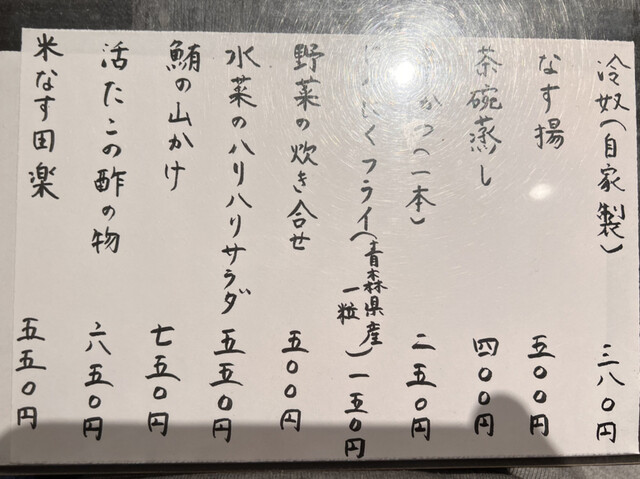 冷奴(自家製) 三八〇円
なす揚 五〇〇円
茶碗蒸し 四〇〇円
かつ(一本) 二五〇円
くフライ(青森県産一粒) 一五〇円
野菜の炊き合せ 五〇〇円
水菜のハリハリサラダ 五五〇円
鮪の山かけ 七五〇円
活たこの酢の物 六五〇円
米なす田楽 五五〇円